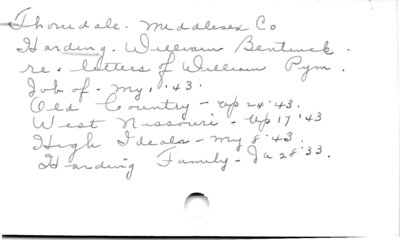 Thorndale. Middlesex Co
Harding. William Bentinck.
re. letters of William Pym.
Job of - My 1, '43.
Old Country - Ap 24 '43.
West Nissouri - Ap 17 '43
High Ideals - My 8 '43.
Harding Family - Ja 28 '33.